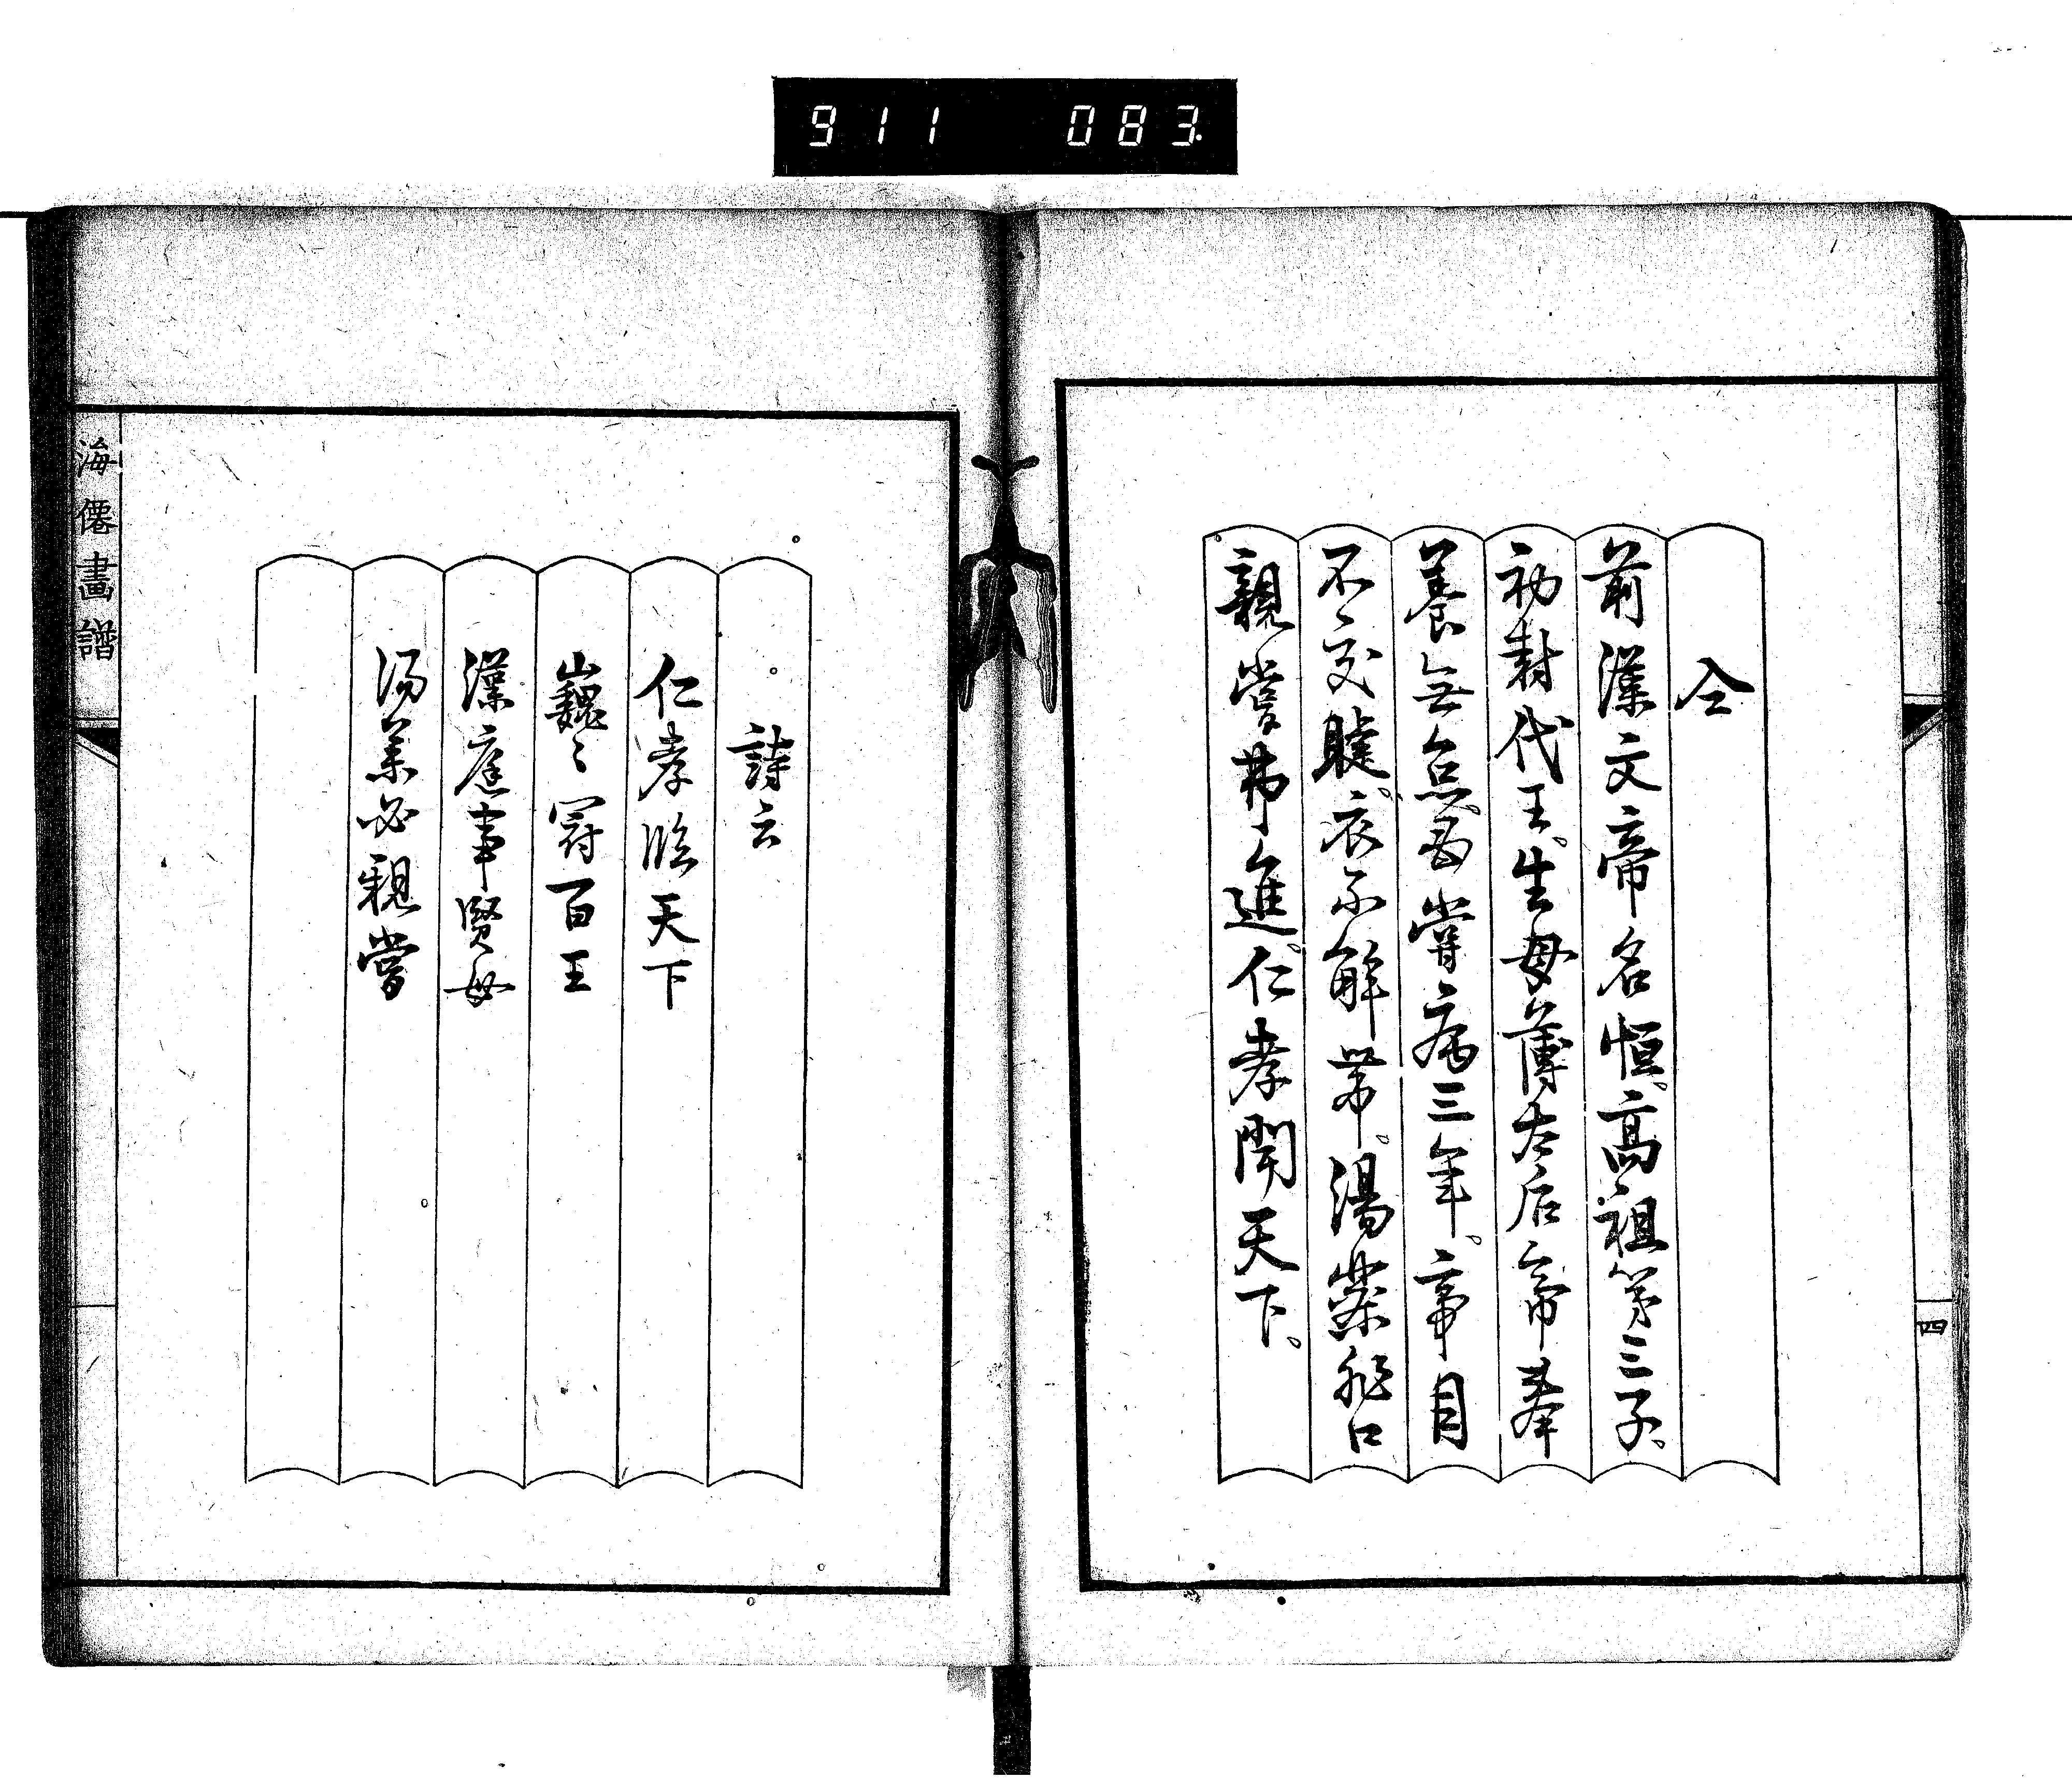 911 083
仝
前漢文帝名恒。高祖第三子。
初封代王。生母薄太后帝奉
養無怠。母嘗病三年。帝目
不交睫。衣不解帶。湯藥非口
親嘗弗進。仁孝聞天下。
四
詩云
仁孝臨天下
巍〻冠百王
漢庭事賢母
湯藥必親嘗
海僊畫譜